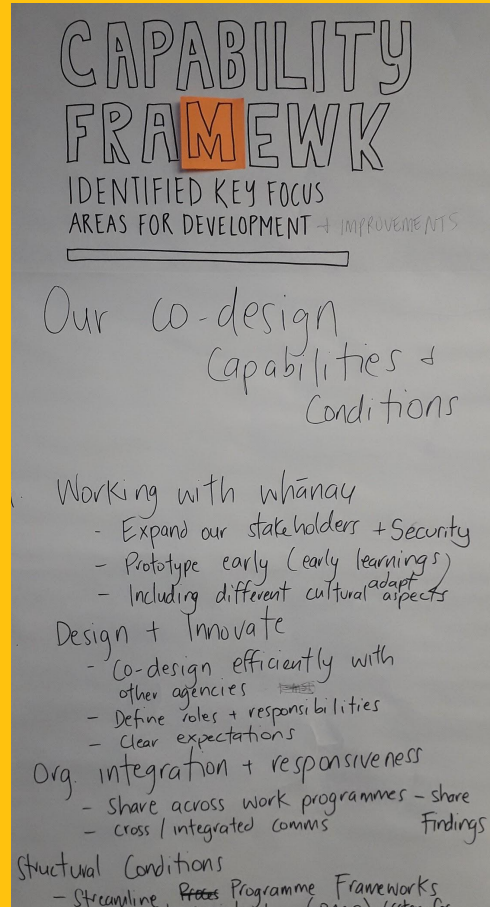 CAPABILITY
FRAMEWK
IDENTIFIED KEY FOCUS
AREAS FOR DEVELOPMENT + IMPROVEMENTS
Our co-design
Capabilities &
Conditions
Working with whānau
- Expand our stakeholders + Security
- Prototype early (early learnings)
adapt
- Including different cultural aspects
Design + Innovate
- Co-design efficiently with
other agencies
- Define roles + responsibilities
- Clear expectations
Org. integration + responsiveness
- Share across work programmes - share
- cross / integrated comms Findings
Structural Conditions
- Streamline Programme Frameworks